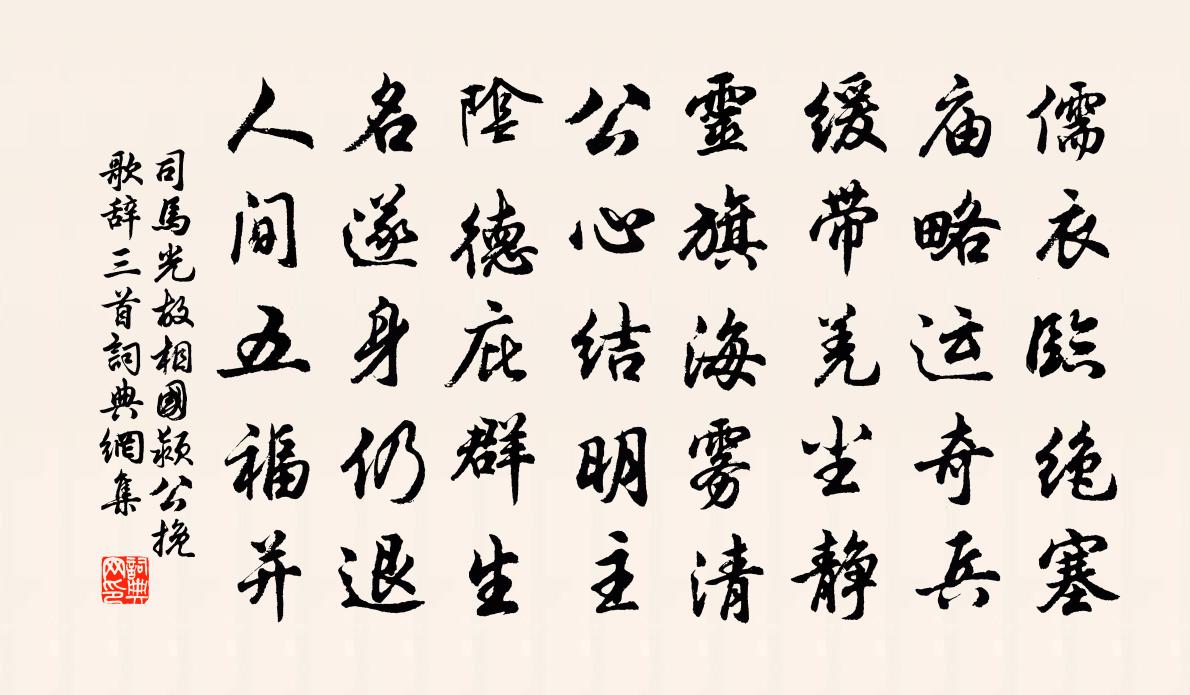 儒衣臨绝塞
庙略运奇兵
缓带羌尘静
靈旗海雾清
公心结明主
陰德庇群生
名遂身仍退
人间五福并
司馬光故相國颍公挽
歌辞三首詞典網集
詞典网印